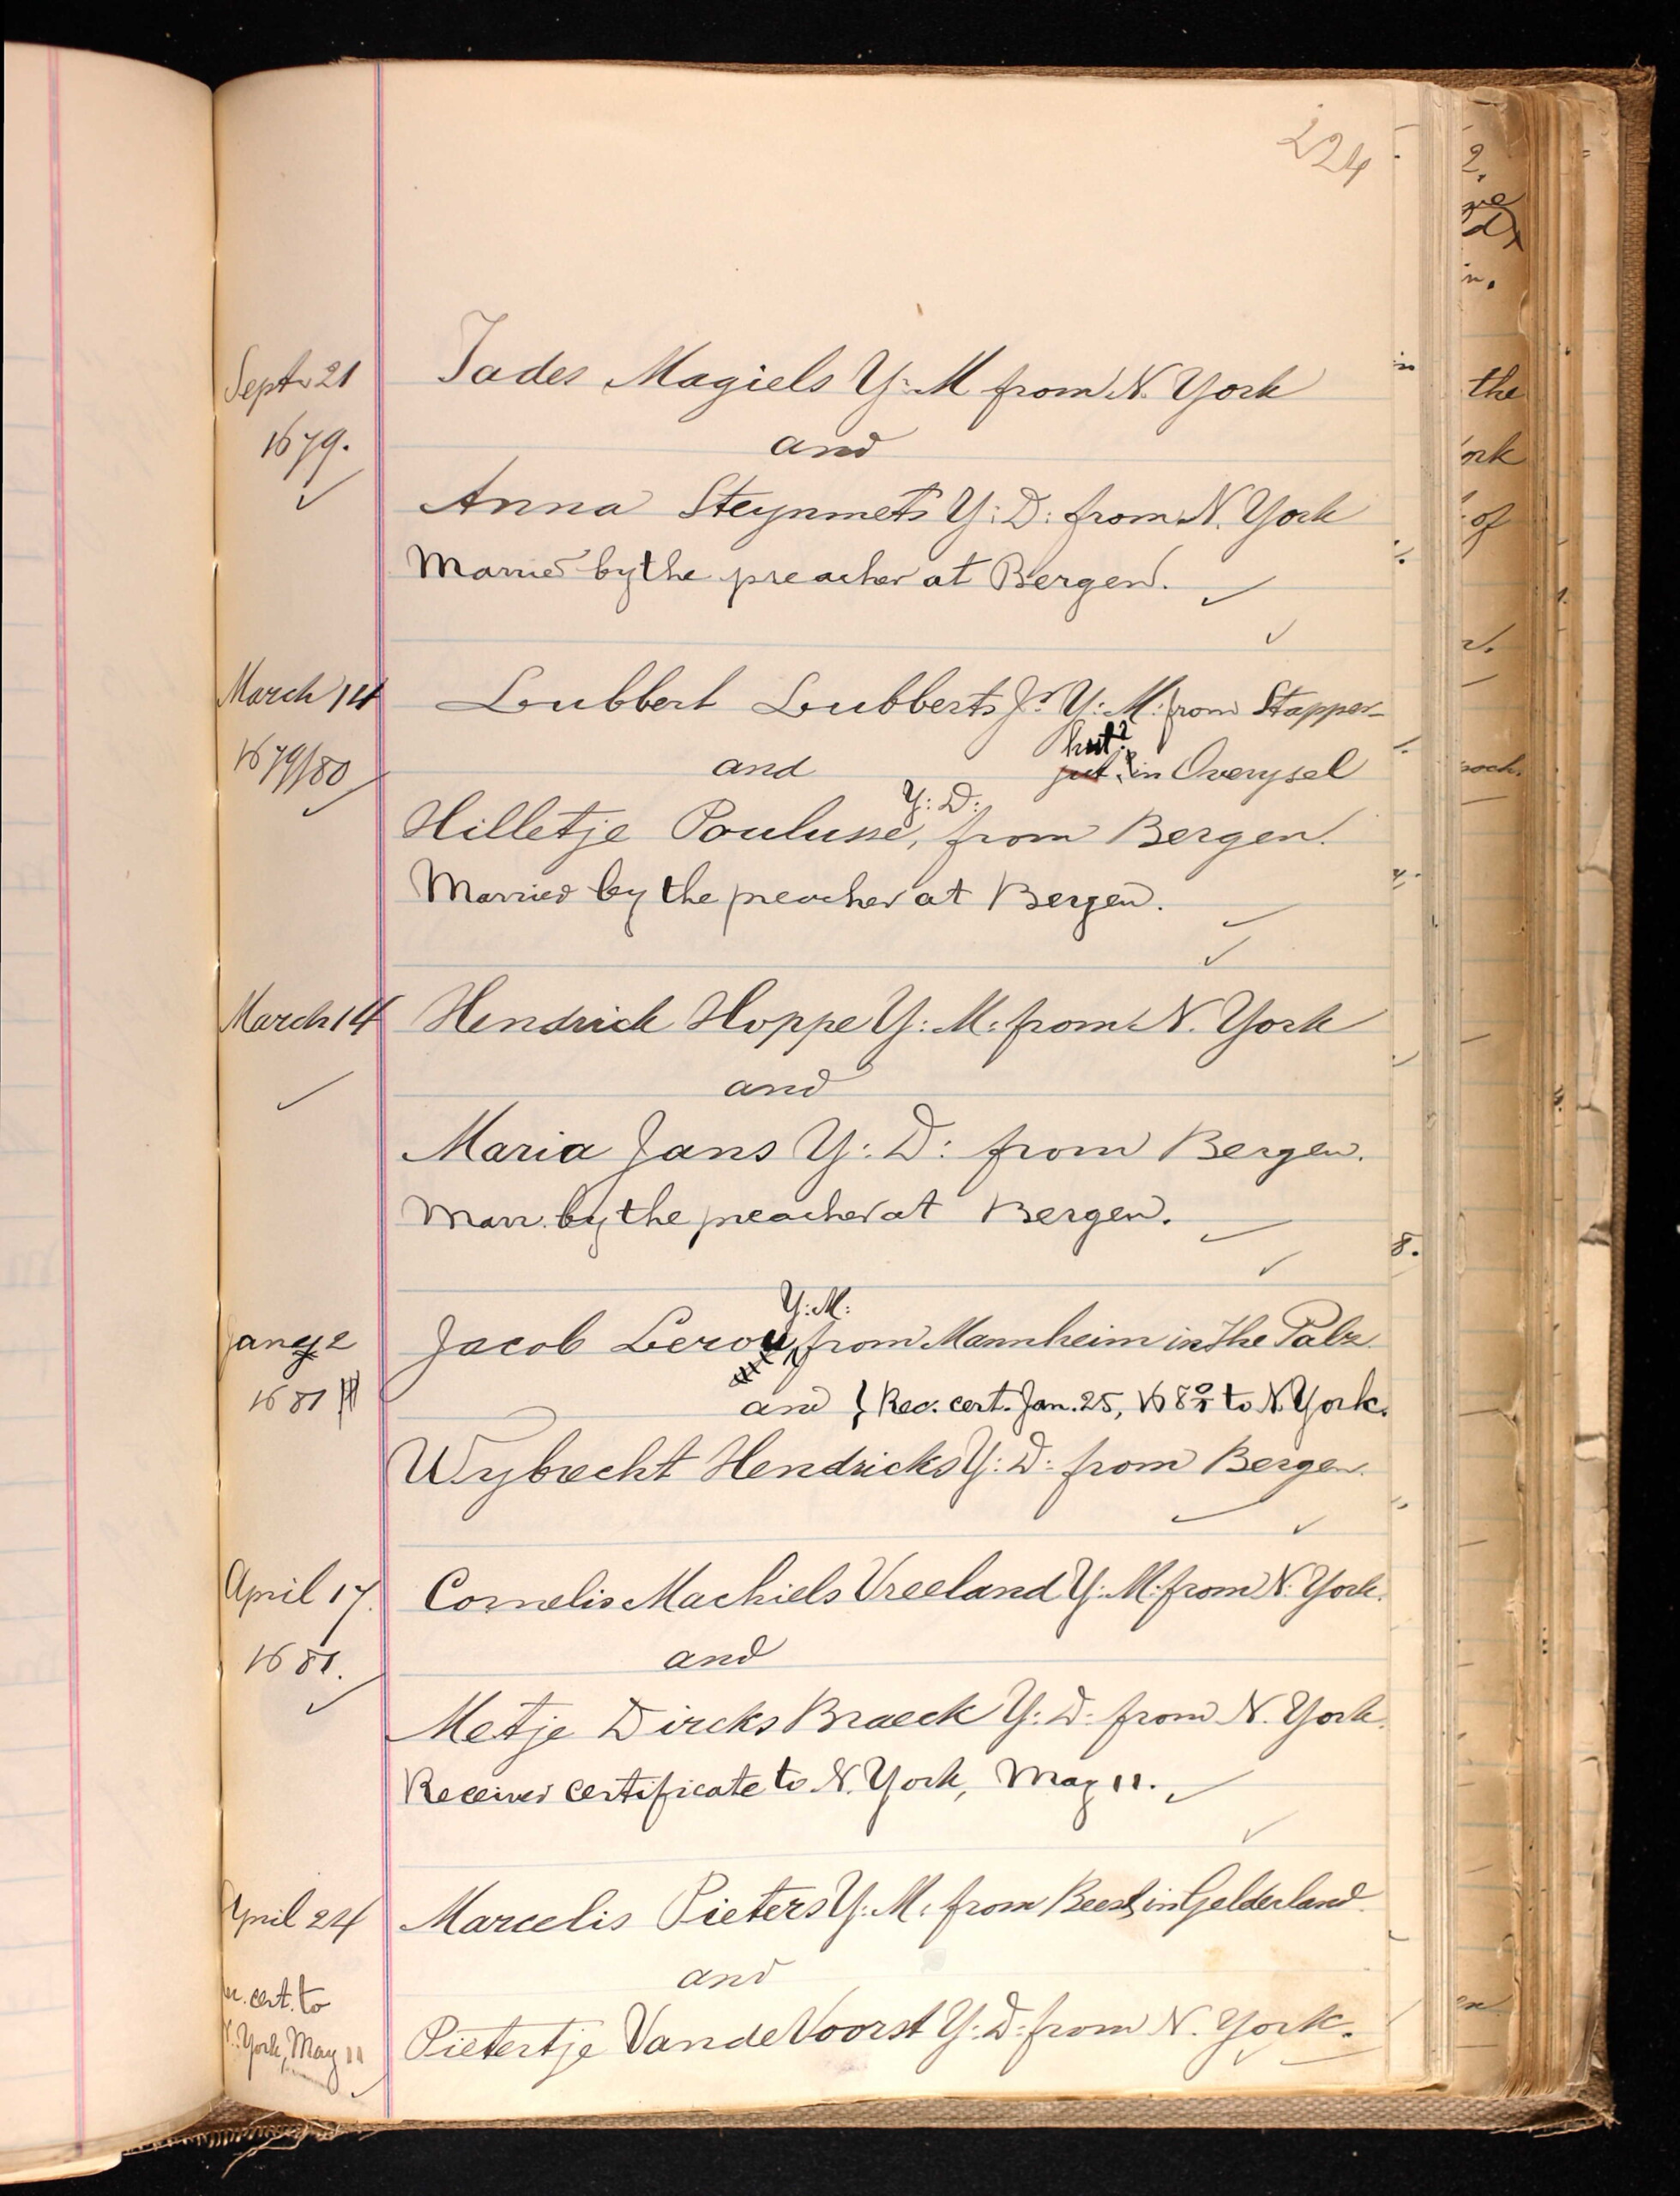 224
Sept 21 Tades Magiels Y: M from N. York
1679. and
Anna Steynmets Y: D: from N. York
Married by the preacher at Bergen.
March 14 Lubbert Lubberts Jr. Y: M: from Stapper-
hut?
1679/80 and in Overysel
Y: D:
Hilletje Poulusse, from Bergen.
Married by the preacher at Bergen.
March 14 Hendrick Hoppe Y: M: from N. York
and
Maria Jans Y: D: from Bergen.
Marr. by the preacher at Bergen.
Y: M:
Jany 2 Jacob Lerou, from Mannheim in the Palz.
1681 and } Rec. cert. Jan. 25, 168 0/1 to N. York.
Wybrecht Hendricks Y: D: from Bergen.
April 17. Cornelis Machiels Vreeland Y: M: from N. York.
1681. and
Metje Dircks Braeck Y: D: from N. York.
Received certificate to N. York, May 11.
April 24 Marcelis Pieters Y: M: from Beest, in Gelderland.
and
cert. to
York, May 11
Pietertje Van de Voorst Y: D: from N. York.
8.
the
of